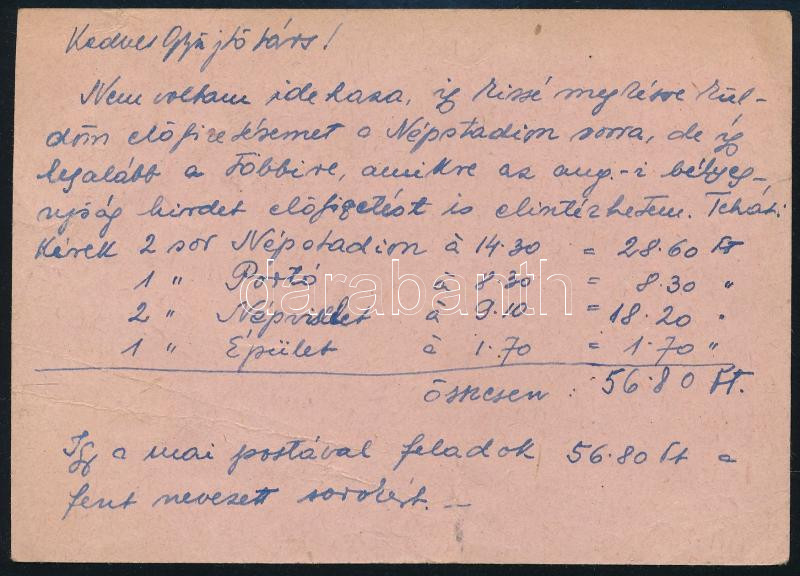 Kedves Gyűjtőtárs!
Nem voltam idehaza, így kissé megkésve kül-
döm előfizetésemet a Népstadion sorra, de így
legalább a többire, amikre az aug.-i bélyeg-
ujság hirdet előfizetést is elintézhetem. Tehát:
Kérek 2 sor Népstadion á 14.30 = 28.60 Ft
1 " Portó á 8.30 = 8.30 "
2 " Népviselet á 9.10 = 18.20 "
1 " Épület á 1.70 = 1.70 "
összesen : 56.80 Ft.
Így a mai postával feladok 56.80 Ft a
fent nevezett sorokért. –
darabanth